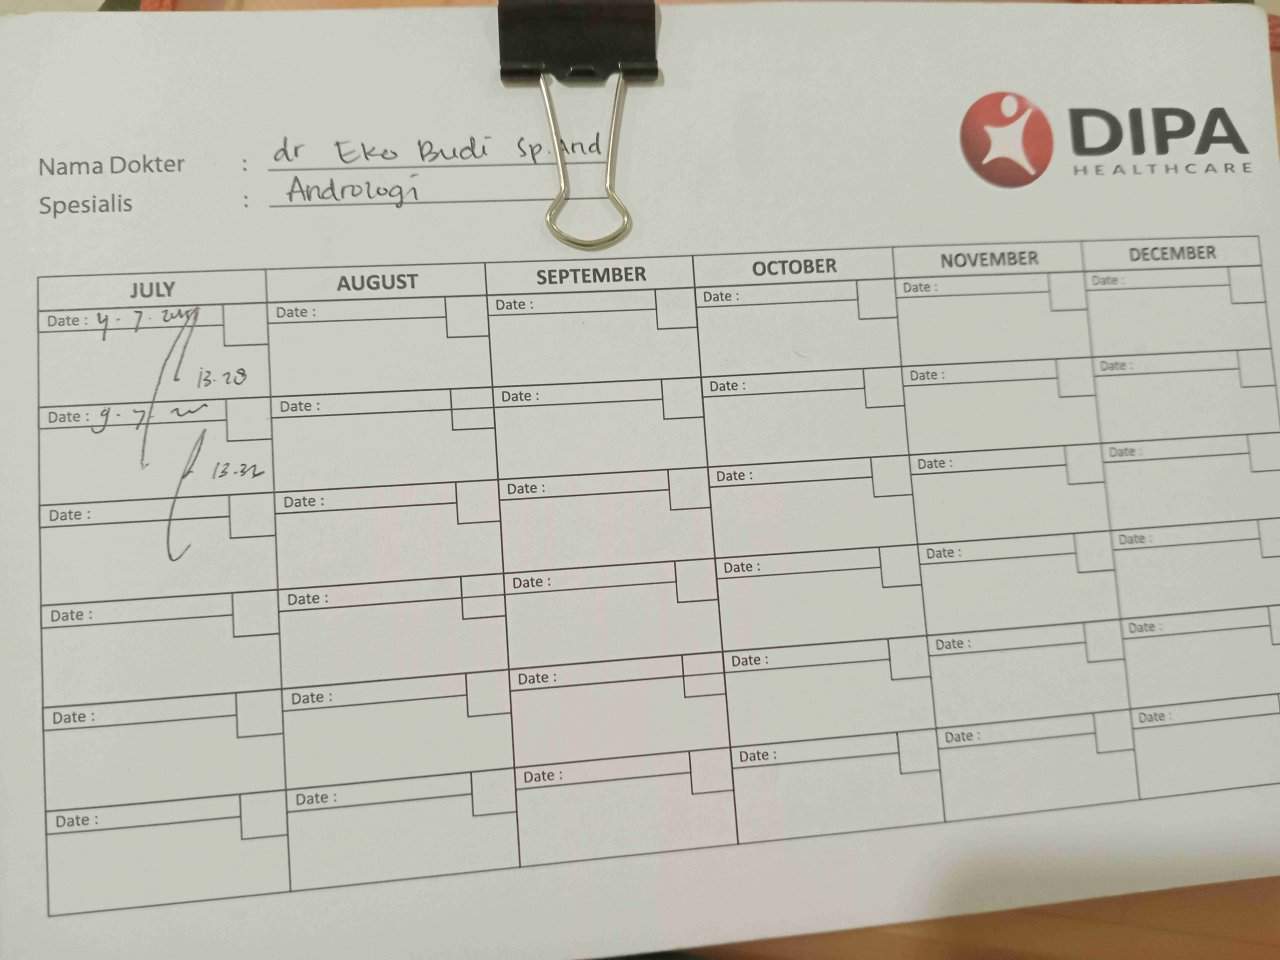 DIPA
HEALTHCARE
Nama Dokter : dr Eko Budi Sp.And
Spesialis : Andrologi
JULY AUGUST SEPTEMBER OCTOBER NOVEMBER DECEMBER
Date : 4 - 7 - Date : Date : Date : Date : Date :
13.28
Date : 9 - 7 - Date : Date : Date : Date : Date :
13.32
Date : Date : Date : Date : Date : Date :
Date : Date : Date : Date : Date : Date :
Date : Date : Date : Date : Date : Date :
Date : Date : Date : Date : Date : Date :